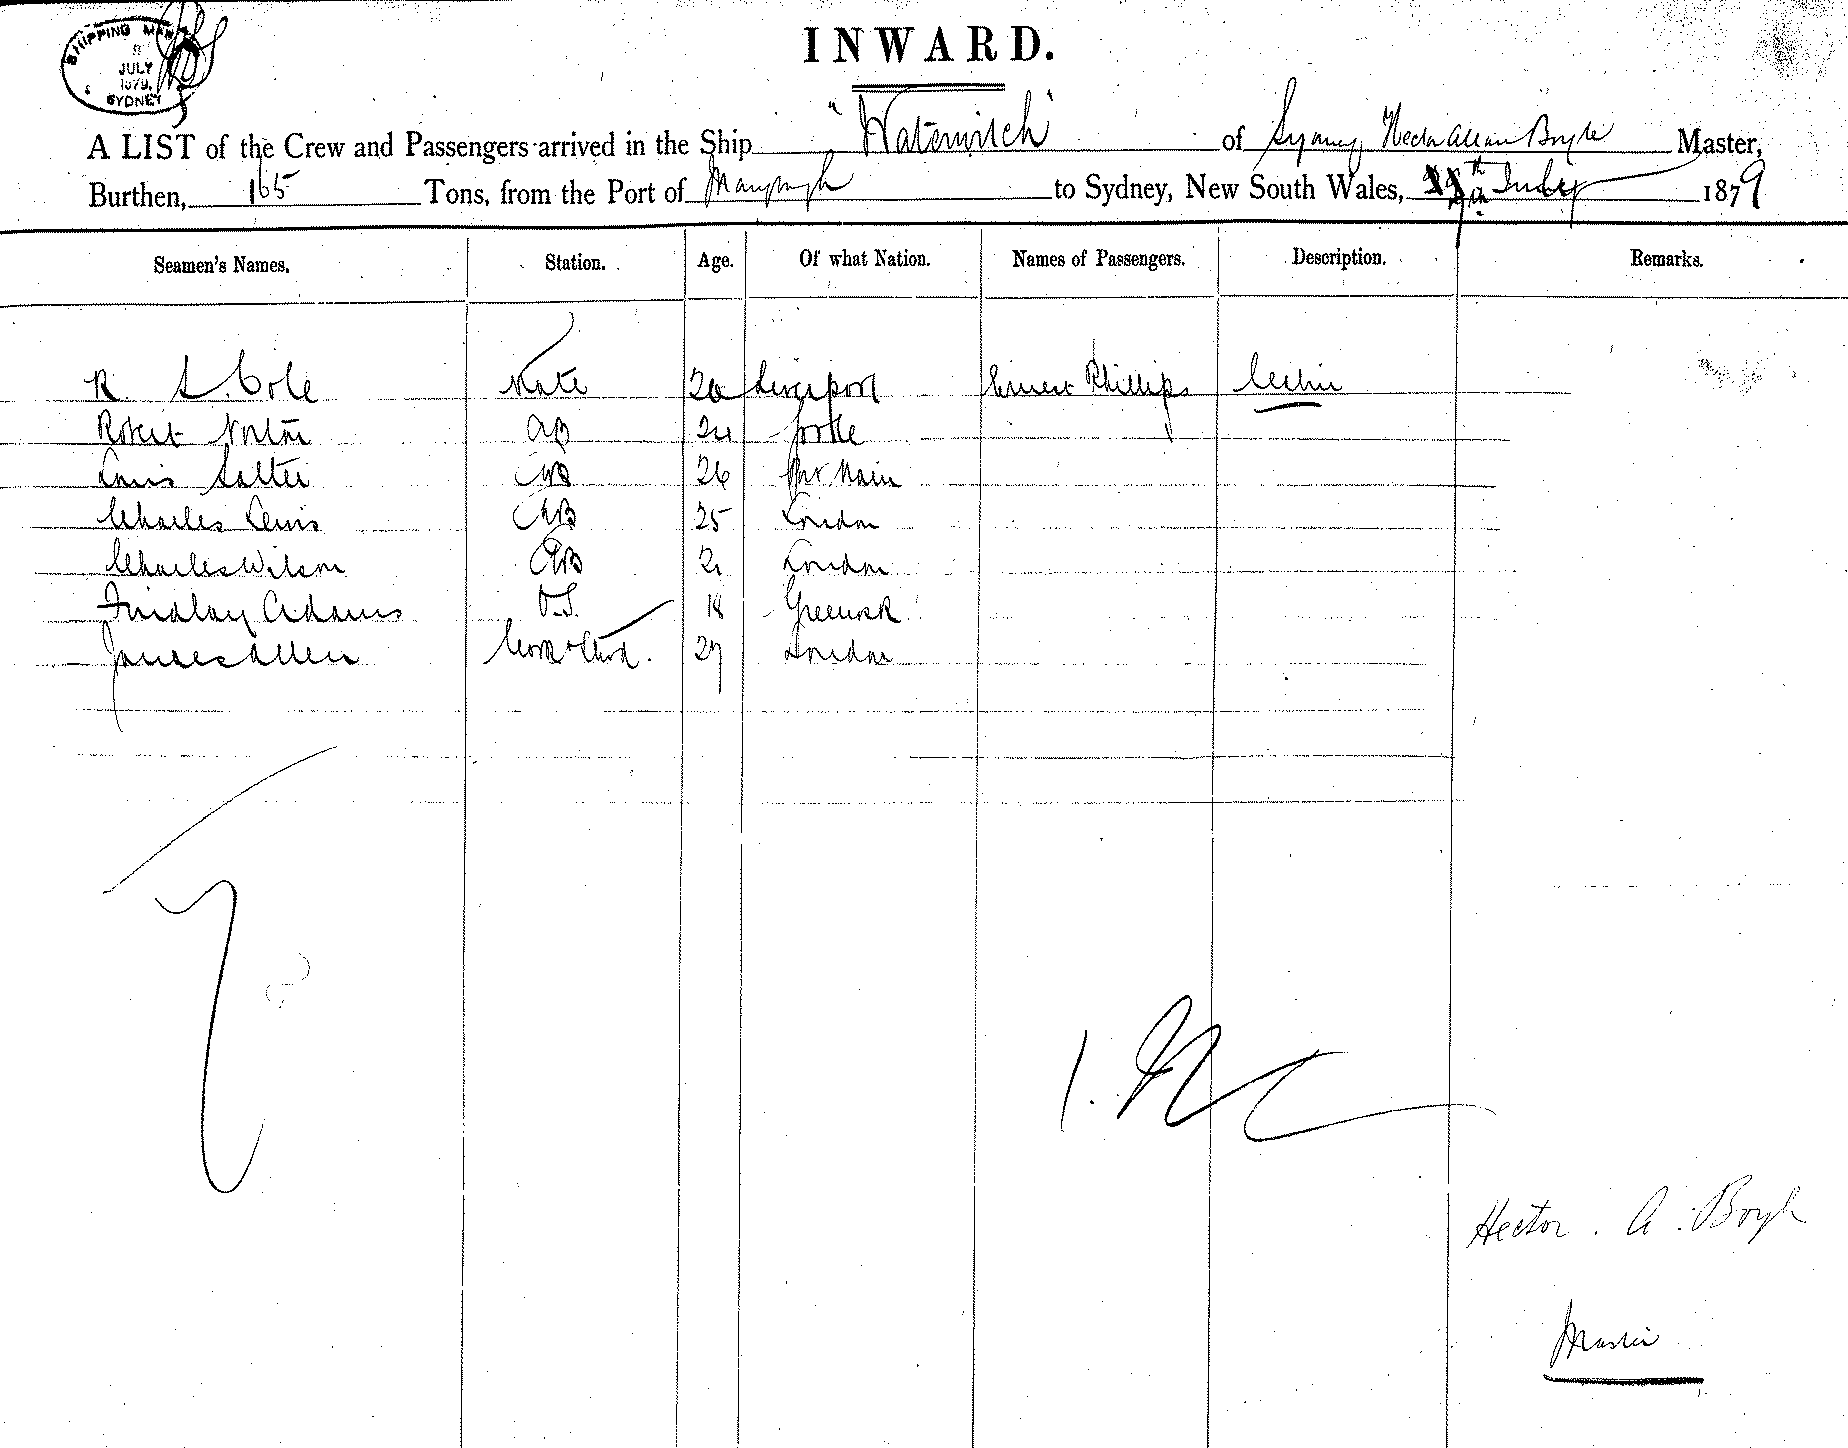 SHIPPING MAS
8
JULY
1879.
SYDNEY
INWARD.
A LIST of the Crew and Passengers arrived in the Ship "Waterwitch" of Sydney, Hector Allan Boyle Master,
Burthen, 165 Tons, from the Port of to Sydney, New South Wales, July 1879
Seamen's Names. Station. Age. Of what Nation. Names of Passengers. Description. Remarks.
R. S. Cole Mate Liverpool Ernest Phillips Cabin
Robert Norton AB 24
Louis Salter AB 26
Charles Lewis AB 25 London
Charles Wilson AB 21 London
Findlay Adams O.S. 18 Greenock
James Allen Cook & Stwd. 29 London
7
1.
Hector. A. Boyle
Master